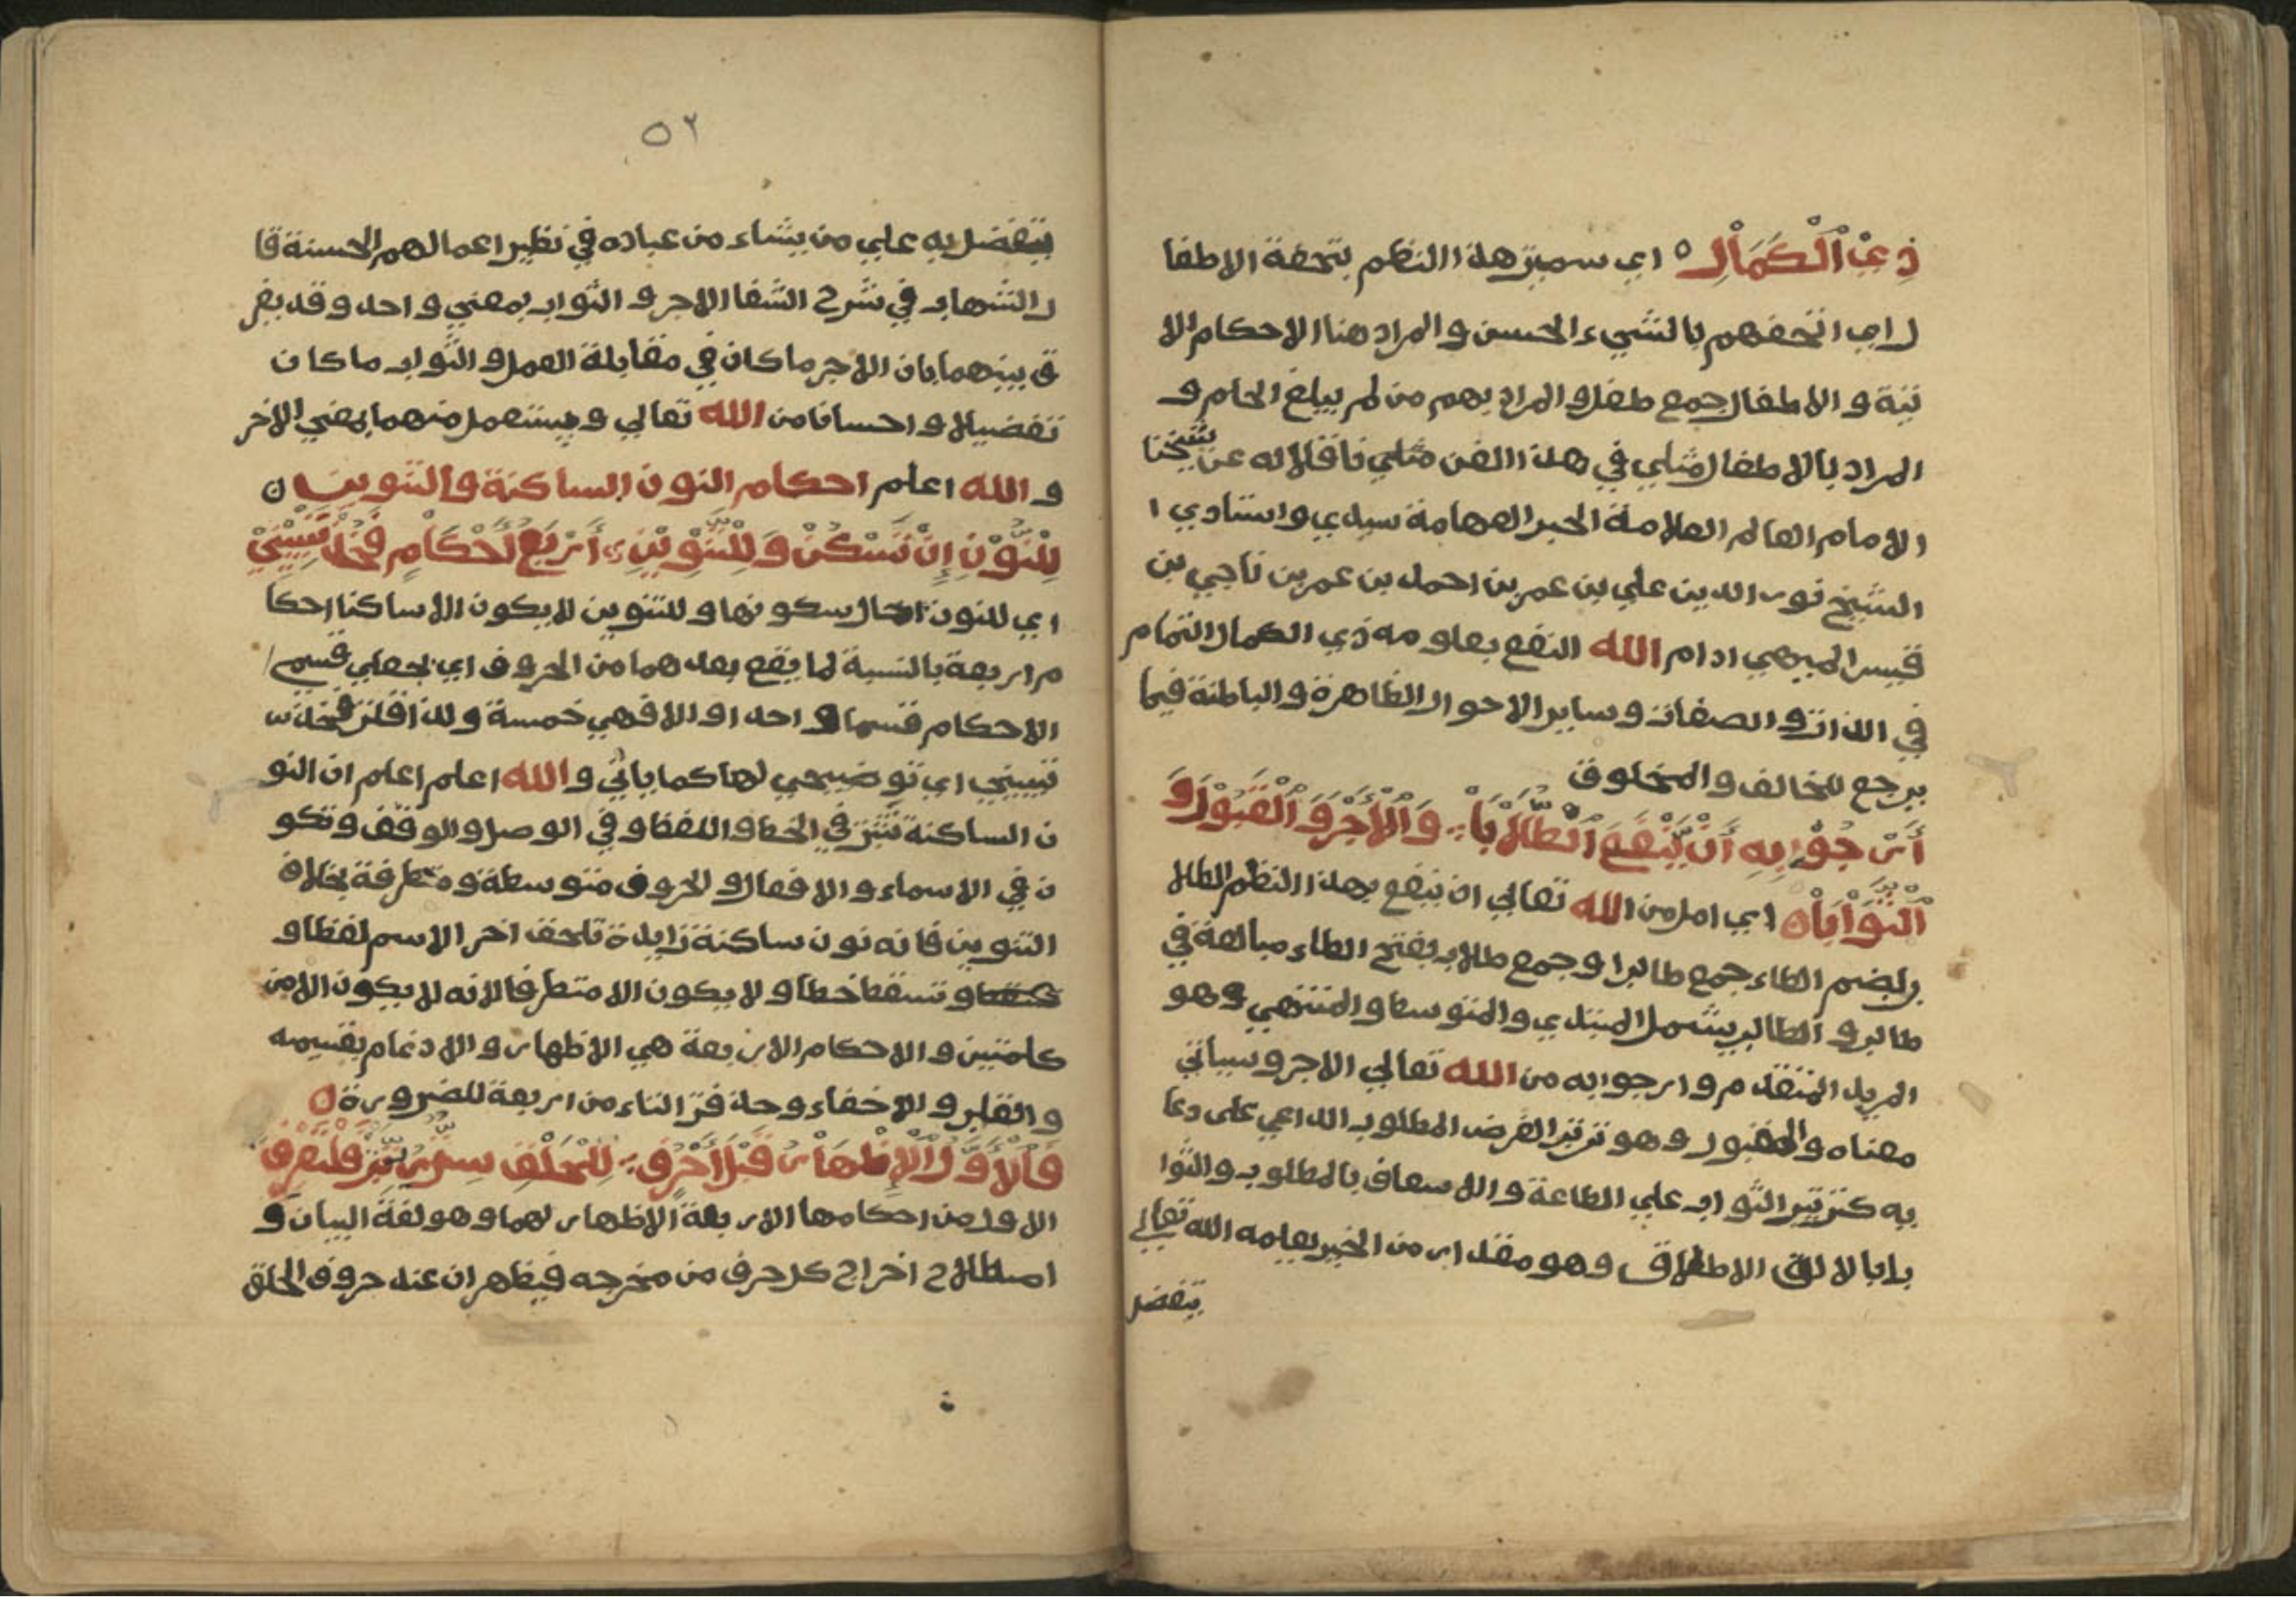 ذِي الْكَمَالِ ه اي سميت هذا النظم بتحفة الاطفا
ل اي اتحفهم بالشيء الحسن والمراد هنا الاحكام الا
تية والاطفال جمع طفل والمراد بهم من لم يبلغ الحلم و
المراد بالاطفال مثلي في هذا الفن مثلي ناقلا له عن شيخنا
الامام العالم العلامة الحبر الفهامة سيدي واستاذي ا
الشيخ نور الدين علي بن عمر بن احمد بن عمر بن ناجي بن
قيس الميهي ادام الله النفع بعلومه ذي الكمال التمام
في الذات والصفات وساير الاحوال الظاهرة والباطنة فيما
يرجع للخالق والمخلوق
أَرْجُوْ بِهِ أَنْ يَّنْفَعَ الْطُّلَّابَا وَالْأَجْرَ وَالْقَبُوْلَ وَ
الْثَّوَابَا ه اي امل من الله تعالي ان ينفع بهذا النظم الطلا
ب بضم الطاء جمع طالب او جمع طلاب بفتح الطاء مبالغة في
طالب والطالب يشمل المبتدي والمتوسط والمنتهي وهو
المريد المتقدم وارجوا به من الله تعالي الاجر وسياتي
معناه والقبول وهو ترتب الغرض المطلوب الداعي على دعا
يه كترتيب الثواب علي الطاعة والاسعاف بالمطلوب والثوا
بابالالق الاطلاق وهو مقدار من الخير يعلمه الله تعالي
يتفضل
٥٢
يتفضل به علي من يشاء من عباده في نظير اعمالهم الحسنة قا
ل الشهاب في شرح الشفا الاجر والثواب بمعني واحد وقد يفر
ق بينهما بان الاجر ما كان في مقابلة العمل والثواب ما كان
تفضيلا واحسانا من الله تعالي ويستعمل منهما بمعني الاخر
والله اعلم احكام النون الساكنة والتنوين ه
لِلنُّوْنِ إِنْ تَسْكُنْ وَلِلتَّنْوِيْنِ أَرْبَعُ أَحْكَامٍ فَخُذْ تَبْيِيْنِيْ
اي للنون حال سكونها وللتنوين لا يكون الا ساكنا احكا
م اربعة بالنسبة لما يقع بعدهما من الحروف اي بجعلي قسمي
الاحكام قسما واحدا والا فهي خمسة ولذا قلت فخذ
تبييني اي توضيحي لها كما ياتي والله اعلم اعلم ان النو
ن الساكنة تثبت في الخط واللفظ وفي الوصل والوقف وتكو
ن في الاسماء والافعال والحروف متوسطة ومتطرفة بخلاف
التنوين فانه نون ساكنة زايدة تلحق اخر الاسم لفظا و
وتسقط خطا ولا يكون الا متطرفا لانه لا يكون الا من
كلمتين والاحكام الاربعة هي الاظهار والادغام بقسيمه
والقلب والاخفاء وحذفت التاء من اربعة للضرورة ه
فَالْأَوَّلُ الْإِظْهَارُ قَبْلَ أَحْرُفِ لِلْحَلْقِ سِتٌّ رُتِّبَتْ فَلْتَعْرِفِ
الاول من احكامها الاربعة الاظهار لهما وهو لغة البيان و
اصطلاح اخراج كل حرف من مخرجه فيظهران عند حروف الحلق